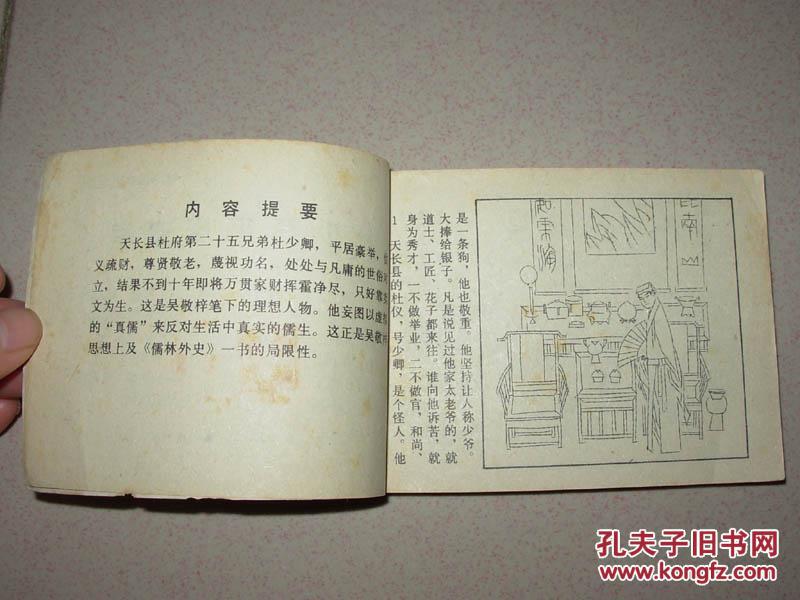 内容提要
天长县杜府第二十五兄弟杜少卿，平居豪举，仗
义疏财，尊贤敬老，蔑视功名，处处与凡庸的世俗
立，结果不到十年即将万贯家财挥霍净尽，只好靠卖
文为生。这是吴敬梓笔下的理想人物。他妄图以虚
的“真儒”来反对生活中真实的儒生。这正是吴敬梓
思想上及《儒林外史》一书的局限性。
1 天长县的杜仪，号少卿，是个怪人。他
身为秀才，一不做举业，二不做官，和尚、
道士、工匠、花子都来往。谁向他诉苦，就
大捧给银子。凡是说见过他家太老爷的，就
是一条狗，他也敬重。他坚持让人称少爷。
如东海
比南山
孔夫子旧书网
www.kongfz.com